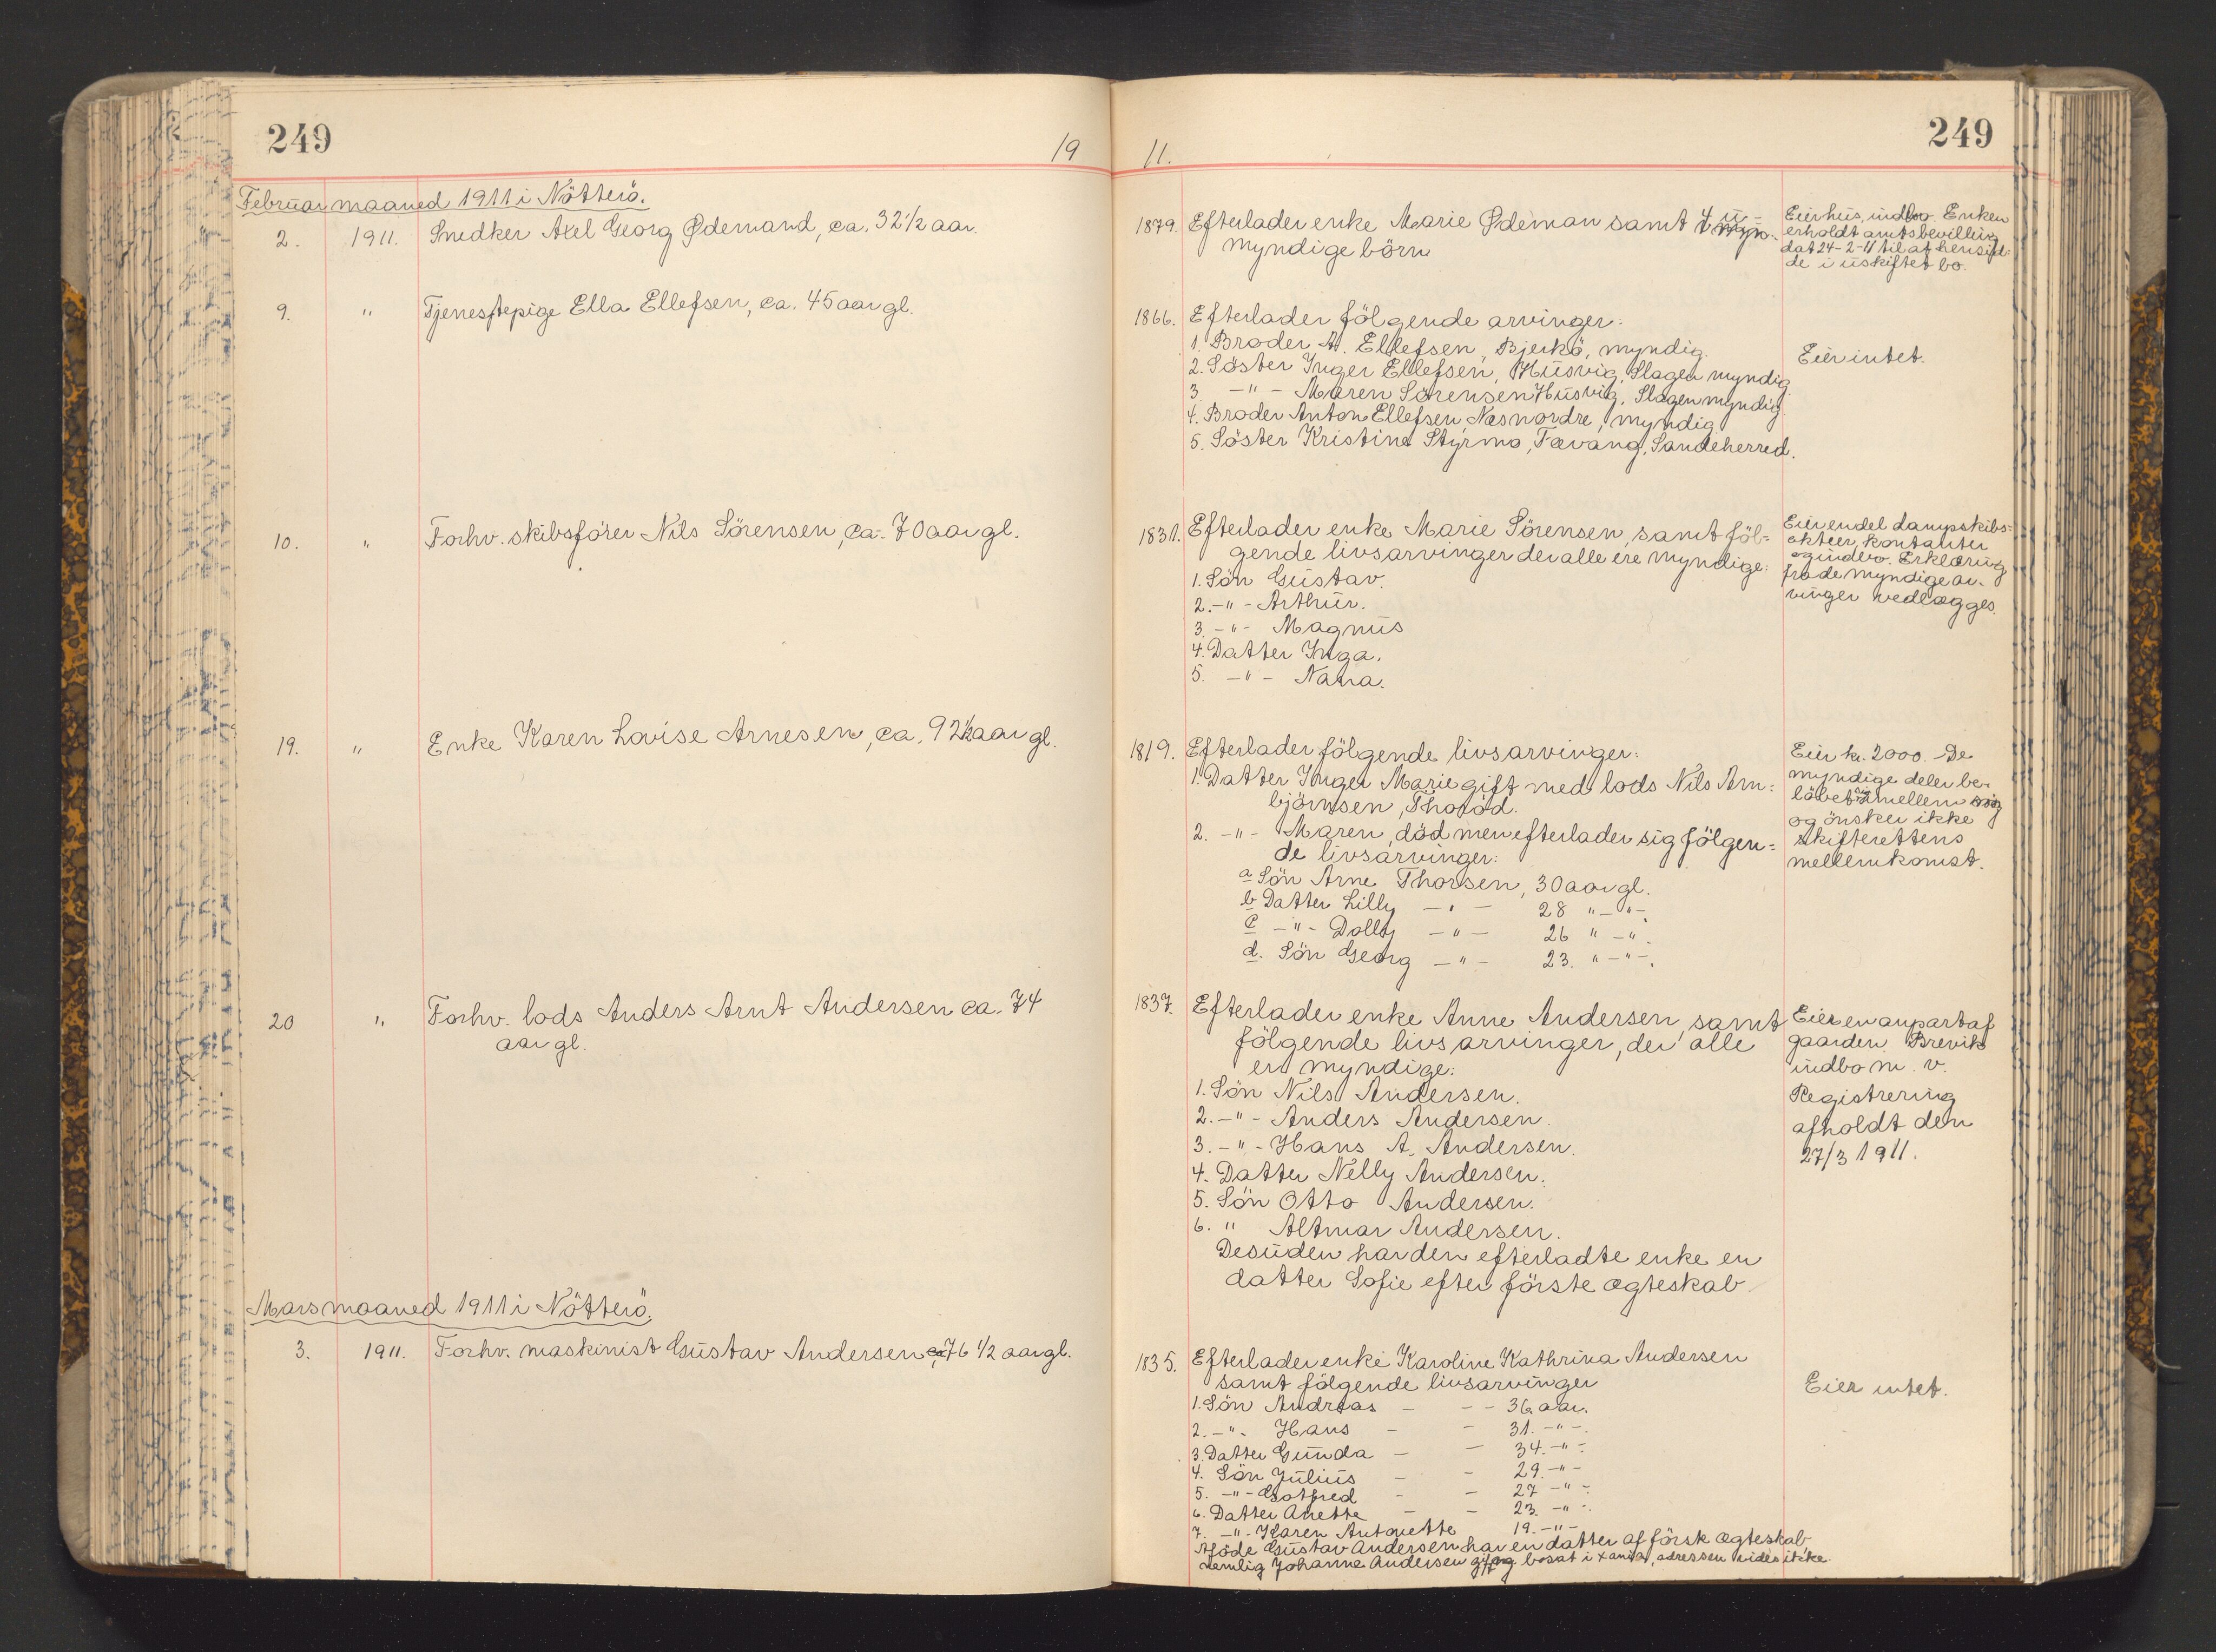 249
19
11.
249
Februar maaned 1911 i Nötterö.
2. 1911. Snedker Axel Georg Ødemand, ca. 32 1/2 aar.
1879. Efterlader enke Marie Ødeman samt 4 u-
myndige börn
Eier hus, indbo. Enken
erholdt amtsbevilling
dat 24-2-11 til at hensid-
de i uskiftet bo.
9. " Tjenestepige Ella Ellefsen, ca. 45 aar gl.
1866. Efterlader fölgende arvinger:
1. Broder A. Ellefsen, Bjerkö, myndig.
2. Söster Inger Ellefsen, Husvig, Slagen myndig
3. -"- Maren Sörensen Husvig, Slagen myndig.
4. Broder Anton Ellefsen Nesnordre, myndig.
5. Söster Kristine Styrmo, Fævang, Sandeherred.
Eier intet.
10. " Forhv. skibsförer Nils Sörensen, ca. 70 aar gl.
1831. Efterlader enke Marie Sörensen, samt föl=
gende livsarvinger der alle ere myndige:
1. Sön Gustav.
2. -"- Arthur.
3. -"- Magnus
4. Datter Inga.
5. -"- Nana.
Eier endel dampskibs=
aktier, kontanter
og indbo. Erklæring
fra de myndige ar-
vinger vedlægges.
19. " Enke Karen Lovise Arnesen, ca. 92 1/2 aar gl.
1819. Efterlader fölgende livsarvinger:
1. Datter Inger Marie gift med lods Nils Arn=
björnsen, Thoröd.
2. -"- Maren, död men efterlader sig fölgen=
de livsarvinger:
a Sön Arne Thorsen, 30 aar gl.
b Datter Lilly -"- 28 "-"-.
c -"- Dolly -"- 26 "-"-.
d. Sön Georg -"- 23. "-"-.
Eier kr. 2000. De
myndige deler be-
löbet sig imellem
og önsker ikke
skifterettens
mellemkomst.
20 " Forhv. lods Anders Arnt Andersen ca. 74
aar gl.
1837. Efterlader enke Anne Andersen, samt
fölgende livsarvinger, der alle
er myndige:
1. Sön Nils Andersen.
2. -"- Anders Andersen.
3. -"- Hans A. Andersen.
4. Datter Nelly Andersen.
5. Sön Otto Andersen.
6. " Altmar Andersen.
Desuden har den efterladte enke en
datter Sofie efter förste ægteskab
Eier en anpart af
gaarden Brevik
indbo m. v.
Registrering
afholdt den
27/3 1911.
Mars maaned 1911 i Nötterö.
3. 1911. Forhv. maskinist Gustav Andersen, 76 1/2 aar gl.
1835. Efterlader enke Karoline Kathrina Andersen
samt fölgende livsarvinger
1. Sön Andreas - - - 36 aar.
2. -"- Hans - - 31. -"-.
3. Datter Gunda - - 34. -"-.
4. Sön Julius - - 29. -"-
5. -"- Gotfred - - 27 -"-.
6. Datter Anette - - 23. -"-.
7. -"- Karen Antonette 19. -"-
Afdöde Gustav Andersen har en datter af försk ægteskab,
nemlig Johanne Andersen gift og bosat i Xania, adressen vides ikke.
Eier intet.